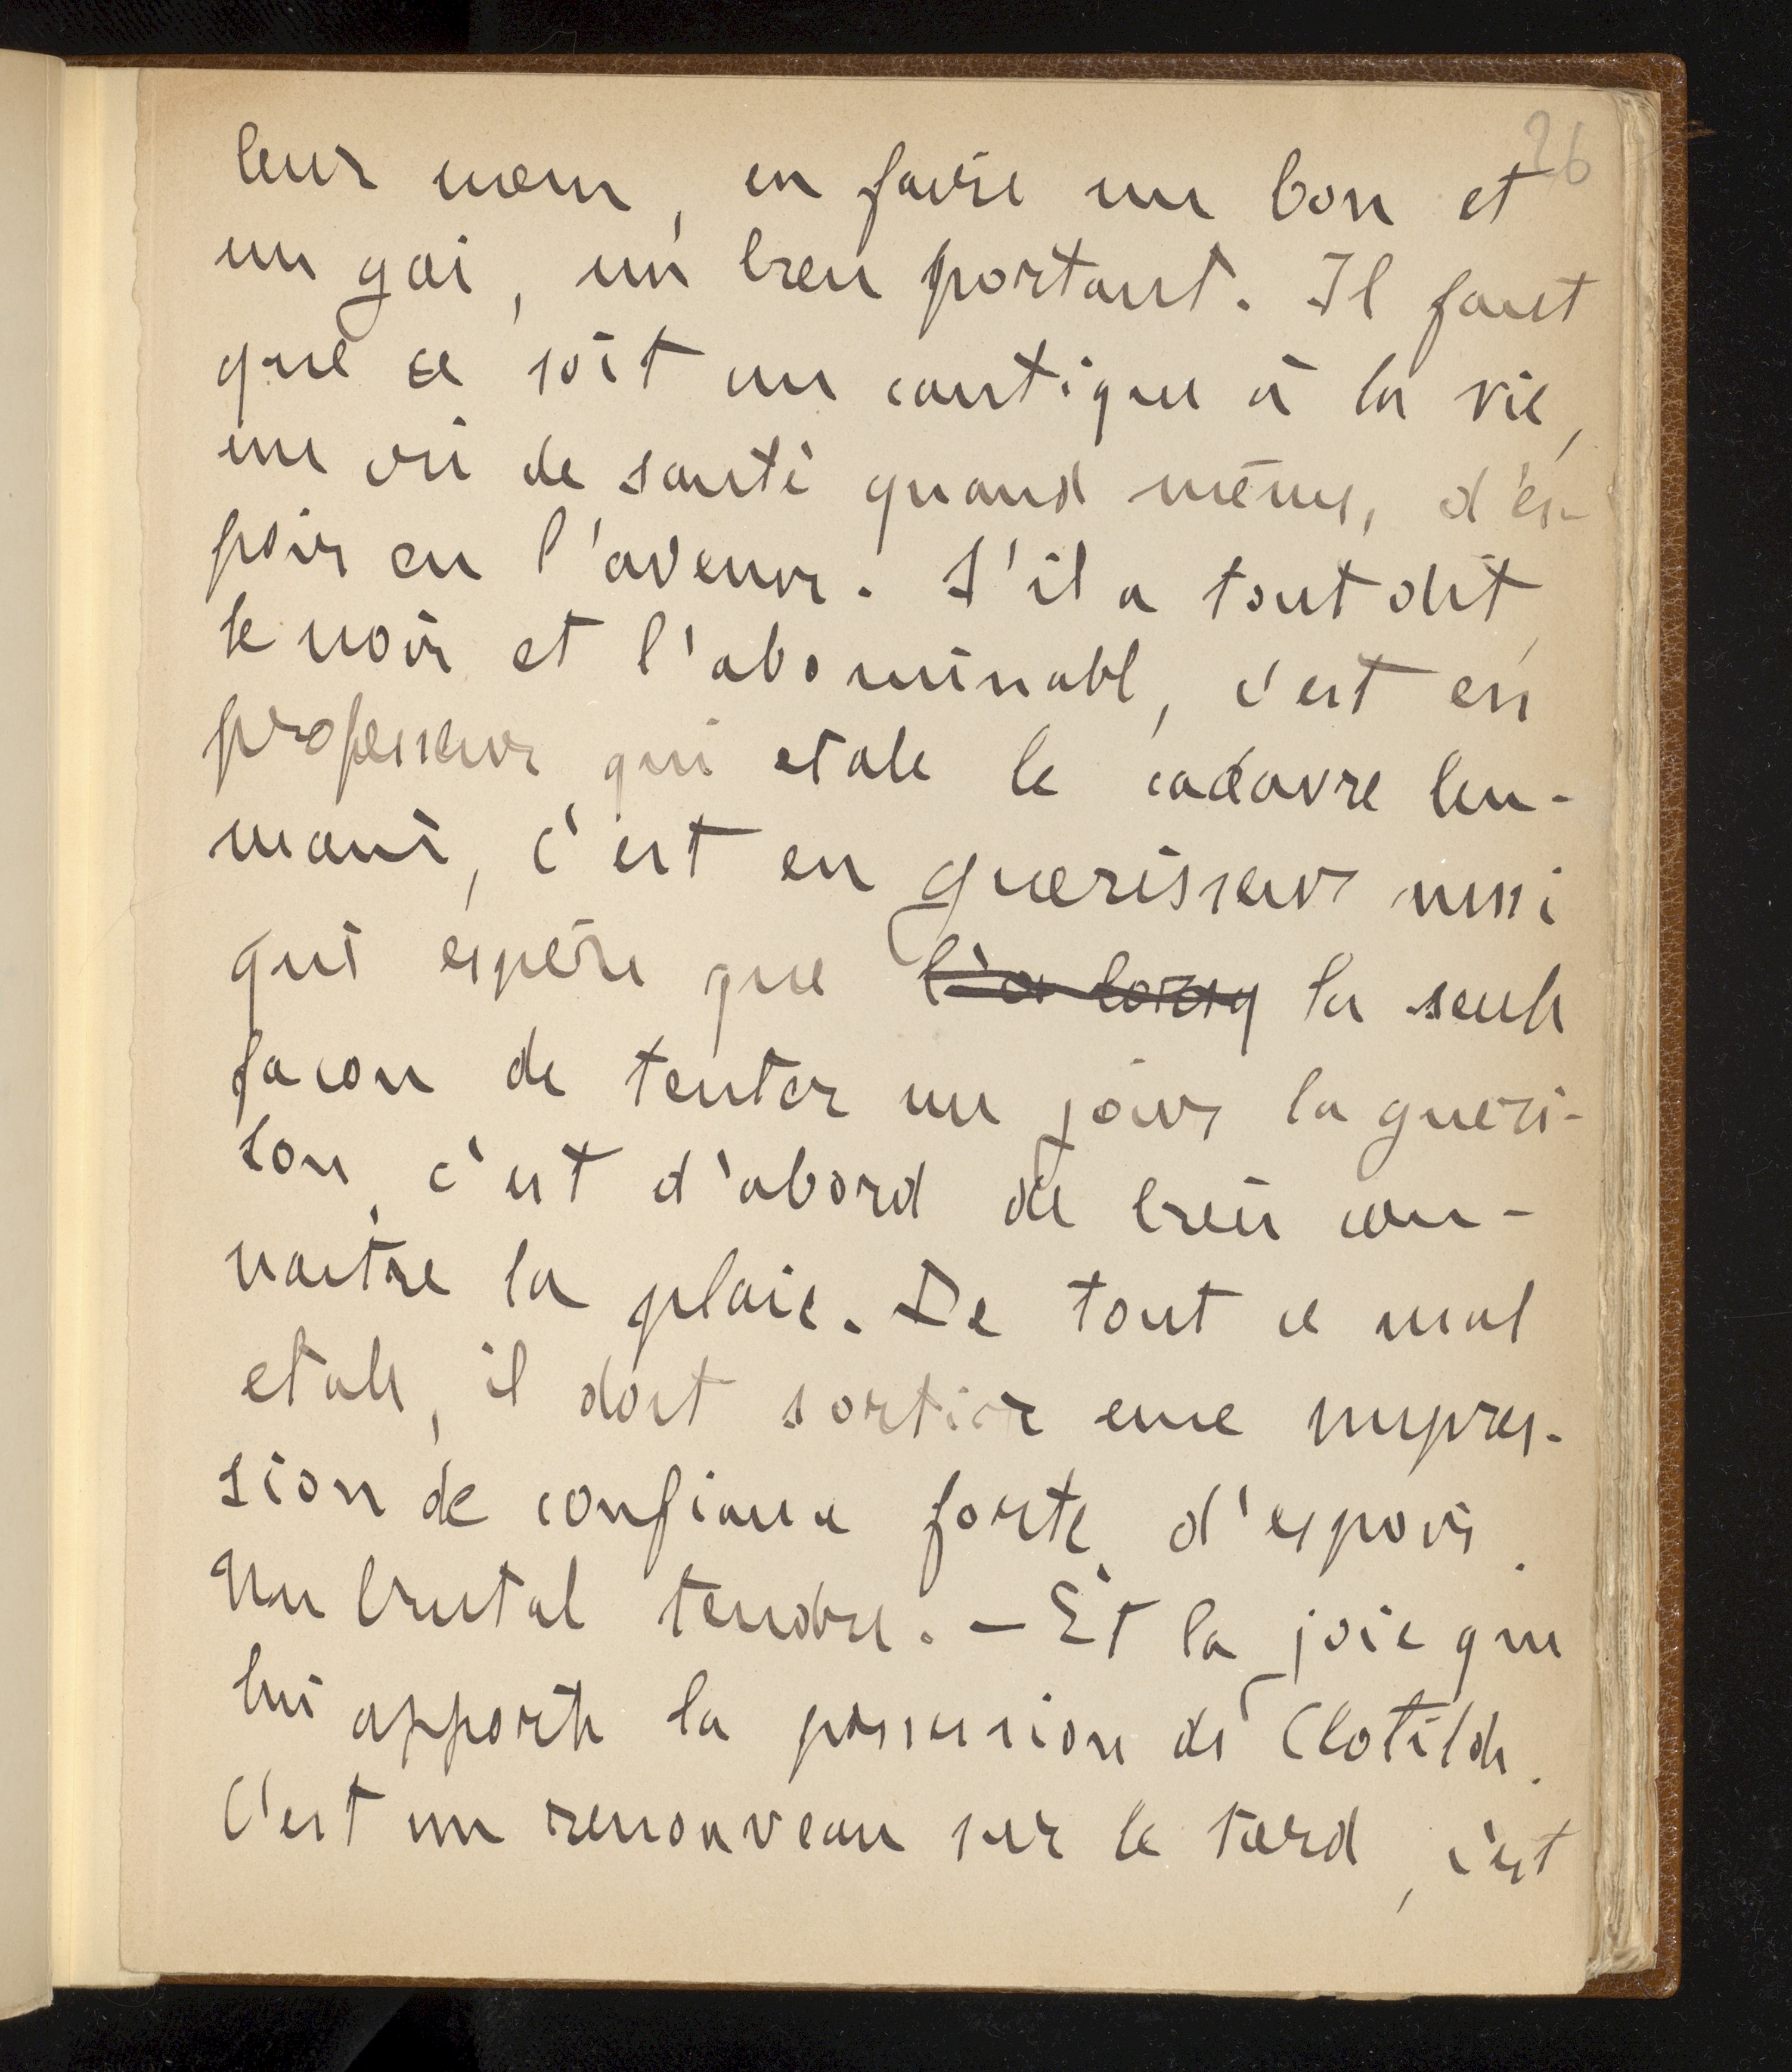 26
leur nom, en faire un bon et
un gai, un bien portant. Il faut
que ce soit un cantique à la vie,
un cri de santé quand même, d'es-
poir en l'avenir. S'il a tout dit,
le noir et l'abominable, c'est en
professeur qui etale le cadavre hu-
main, c'est en guerisseur aussi
qui espère que la seule
facon de tenter un jour la gueri-
son, c'est d'abord de bien con-
naitre la plaie. De tout ce mal
etale, il doit sortir une impres-
sion de confiance forte, d'espoir.
Un brutal tendre. — Et la joie que
lui apporte la possession de Clotilde.
C'est un renouveau sur le tard, c'est